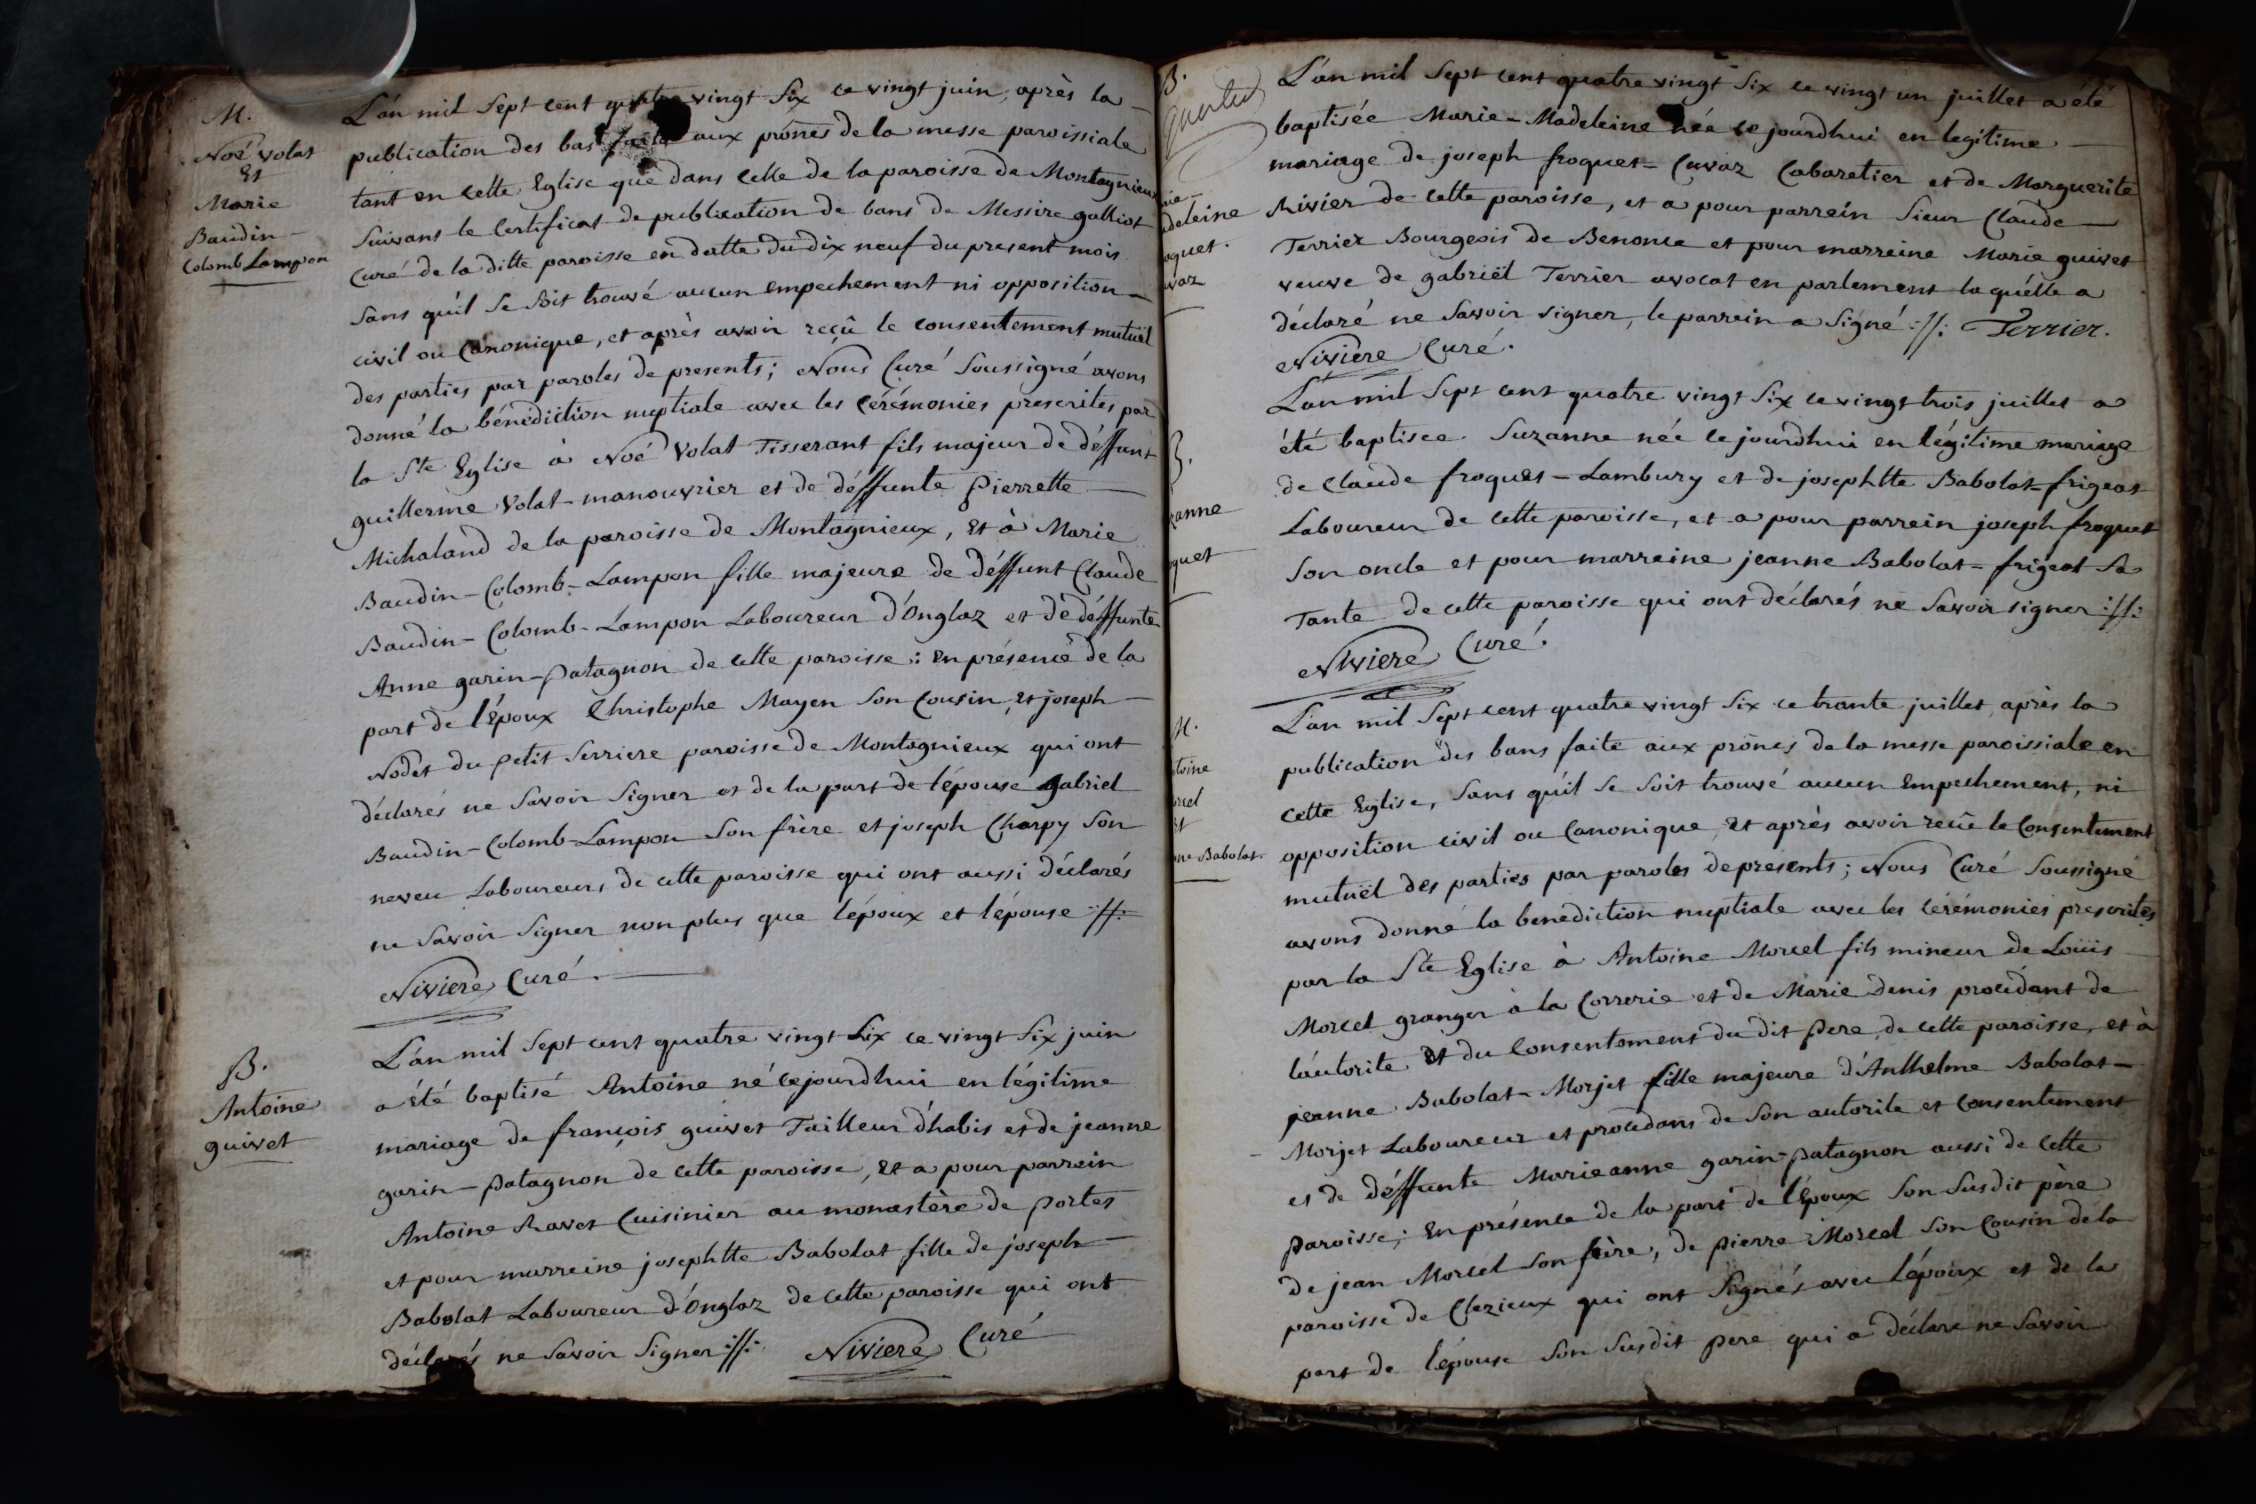 M.
Noé Volat
Et
Marie
Baudin-
Colomb Lampon
L'an mil Sept cent quatre vingt Six ce vingt juin, après la
publication des bas faite aux prônes de la messe paroissiale
tant en cette Eglise que dans celle de la paroisse de Montagnieux
Suivant le Certificat de publication de bans de Messire galliot
Curé de la ditte paroisse en datte du dix neuf du present mois
Sans qu'il Se Soit trouvé aucun empechement ni opposition
civil ou Canonique, et après avoir reçû le consentement mutuël
des parties par paroles de presents; Nous Curé Soussigné avons
donné la bénédiction nuptiale avec les cérémonies prescrites par
la Ste Eglise à Noé Volat Tisserant fils majeur de déffunt
guillerme Volat-manouvrier et de déffunte Pierrette
Michaland de la paroisse de Montagnieux, Et à Marie
Baudin-Colomb-Lampon fille majeure de déffunt Claude
Baudin-Colomb-Lampon Laboureur d'Onglaz et de déffunte
Anne garin-Patagnon de cette paroisse: En présence de la
part de l'Époux Christophe Mayen Son Cousin, Et joseph
Nodet du petit Serriere paroisse de Montagnieux qui ont
déclarés ne Savoir Signer et de la part de l'épouse gabriel
Baudin-Colomb-Lampon Son frère et joseph Charpy Son
neveu Laboureurs de cette paroisse qui ont aussi déclarés
ne Savoir Signer non plus que l'époux et l'épouse :/f:
Niviere Curé.
B.
Antoine
guivet
L'an mil Sept cent quatre vingt Six ce vingt Six juin
a été baptisé Antoine né cejourdhui en légitime
mariage de françois guivet Tailleur d'habis et de jeanne
garin-Patagnon de cette paroisse, Et a pour parrein
Antoine Ravet Cuisinier au monastère de Portes
et pour marreine josephtte Babolat fille de joseph
Babolat Laboureur d'Onglaz de cette paroisse qui ont
déclarés ne Savoir Signer :/f: Niviere Curé
B.
deleine
oquet.
vaz
L'an mil Sept cent quatre vingt Six ce vingt un juillet a été
baptisée Marie-Madeleine née ce jourdhui en legitime
mariage de joseph froquet-Cuvaz Cabaretier et de Marguerite
Rivier de cette paroisse, et a pour parrein Sieur Claude
Terrier Bourgeois de Benonce et pour marreine Marie guivet
veuve de gabriël Terrier avocat en parlement laquélle a
déclaré ne Savoir signer, le parrein a Signé :/f: Terrier.
Niviere Curé.
B.
zanne
oquet
L'an mil Sept cent quatre vingt Six ce vingt trois juillet a
été baptisée Suzanne née ce jourdhui en légitime mariage
de Claude froquet-Lambury et de josephtte Babolat-frigeat
Laboureur de cette paroisse, et a pour parrein joseph froquet
Son oncle et pour marreine jeanne Babolat-frigeat Sa
Tante de cette paroisse qui ont déclarés ne Savoir signer :/f:
Niviere Curé.
M.
toine
orcel
Et
ne Babolat.
L'an mil Sept cent quatre vingt Six ce trante juillet, après la
publication des bans faite aux prônes de la messe paroissiale en
cette Eglise, Sans qu'il Se Soit trouvé aucun Empechement, ni
opposition civil ou Canonique, Et après avoir reçû le Consentement
mutuël des parties par paroles de presents; Nous Curé Soussigné
avons donné la benediction nuptiale avec les cérémonies prescrites
par la Ste Eglise à Antoine Morcel fils mineur de Loüis
Morcel granger à la Correrie et de Marie Denis procédant de
l'autorite Et du Consentement du dit Pere de cette paroisse, et à
jeanne Babolat-Morjet fille majeure d'Anthelme Babolat-
Morjet Laboureur et procédant de Son autorite et consentement
et de déffunte Marieanne garin-Patagnon aussi de cette
Paroisse; En présence de la part de l'Époux Son Susdit père
de jean Morcel Son frère, de Pierre Morcel Son Cousin de la
paroisse de Clezieux qui ont Signés avec l'époux et de la
part de l'épouse Son Susdit Pere qui a déclaré ne Savoir